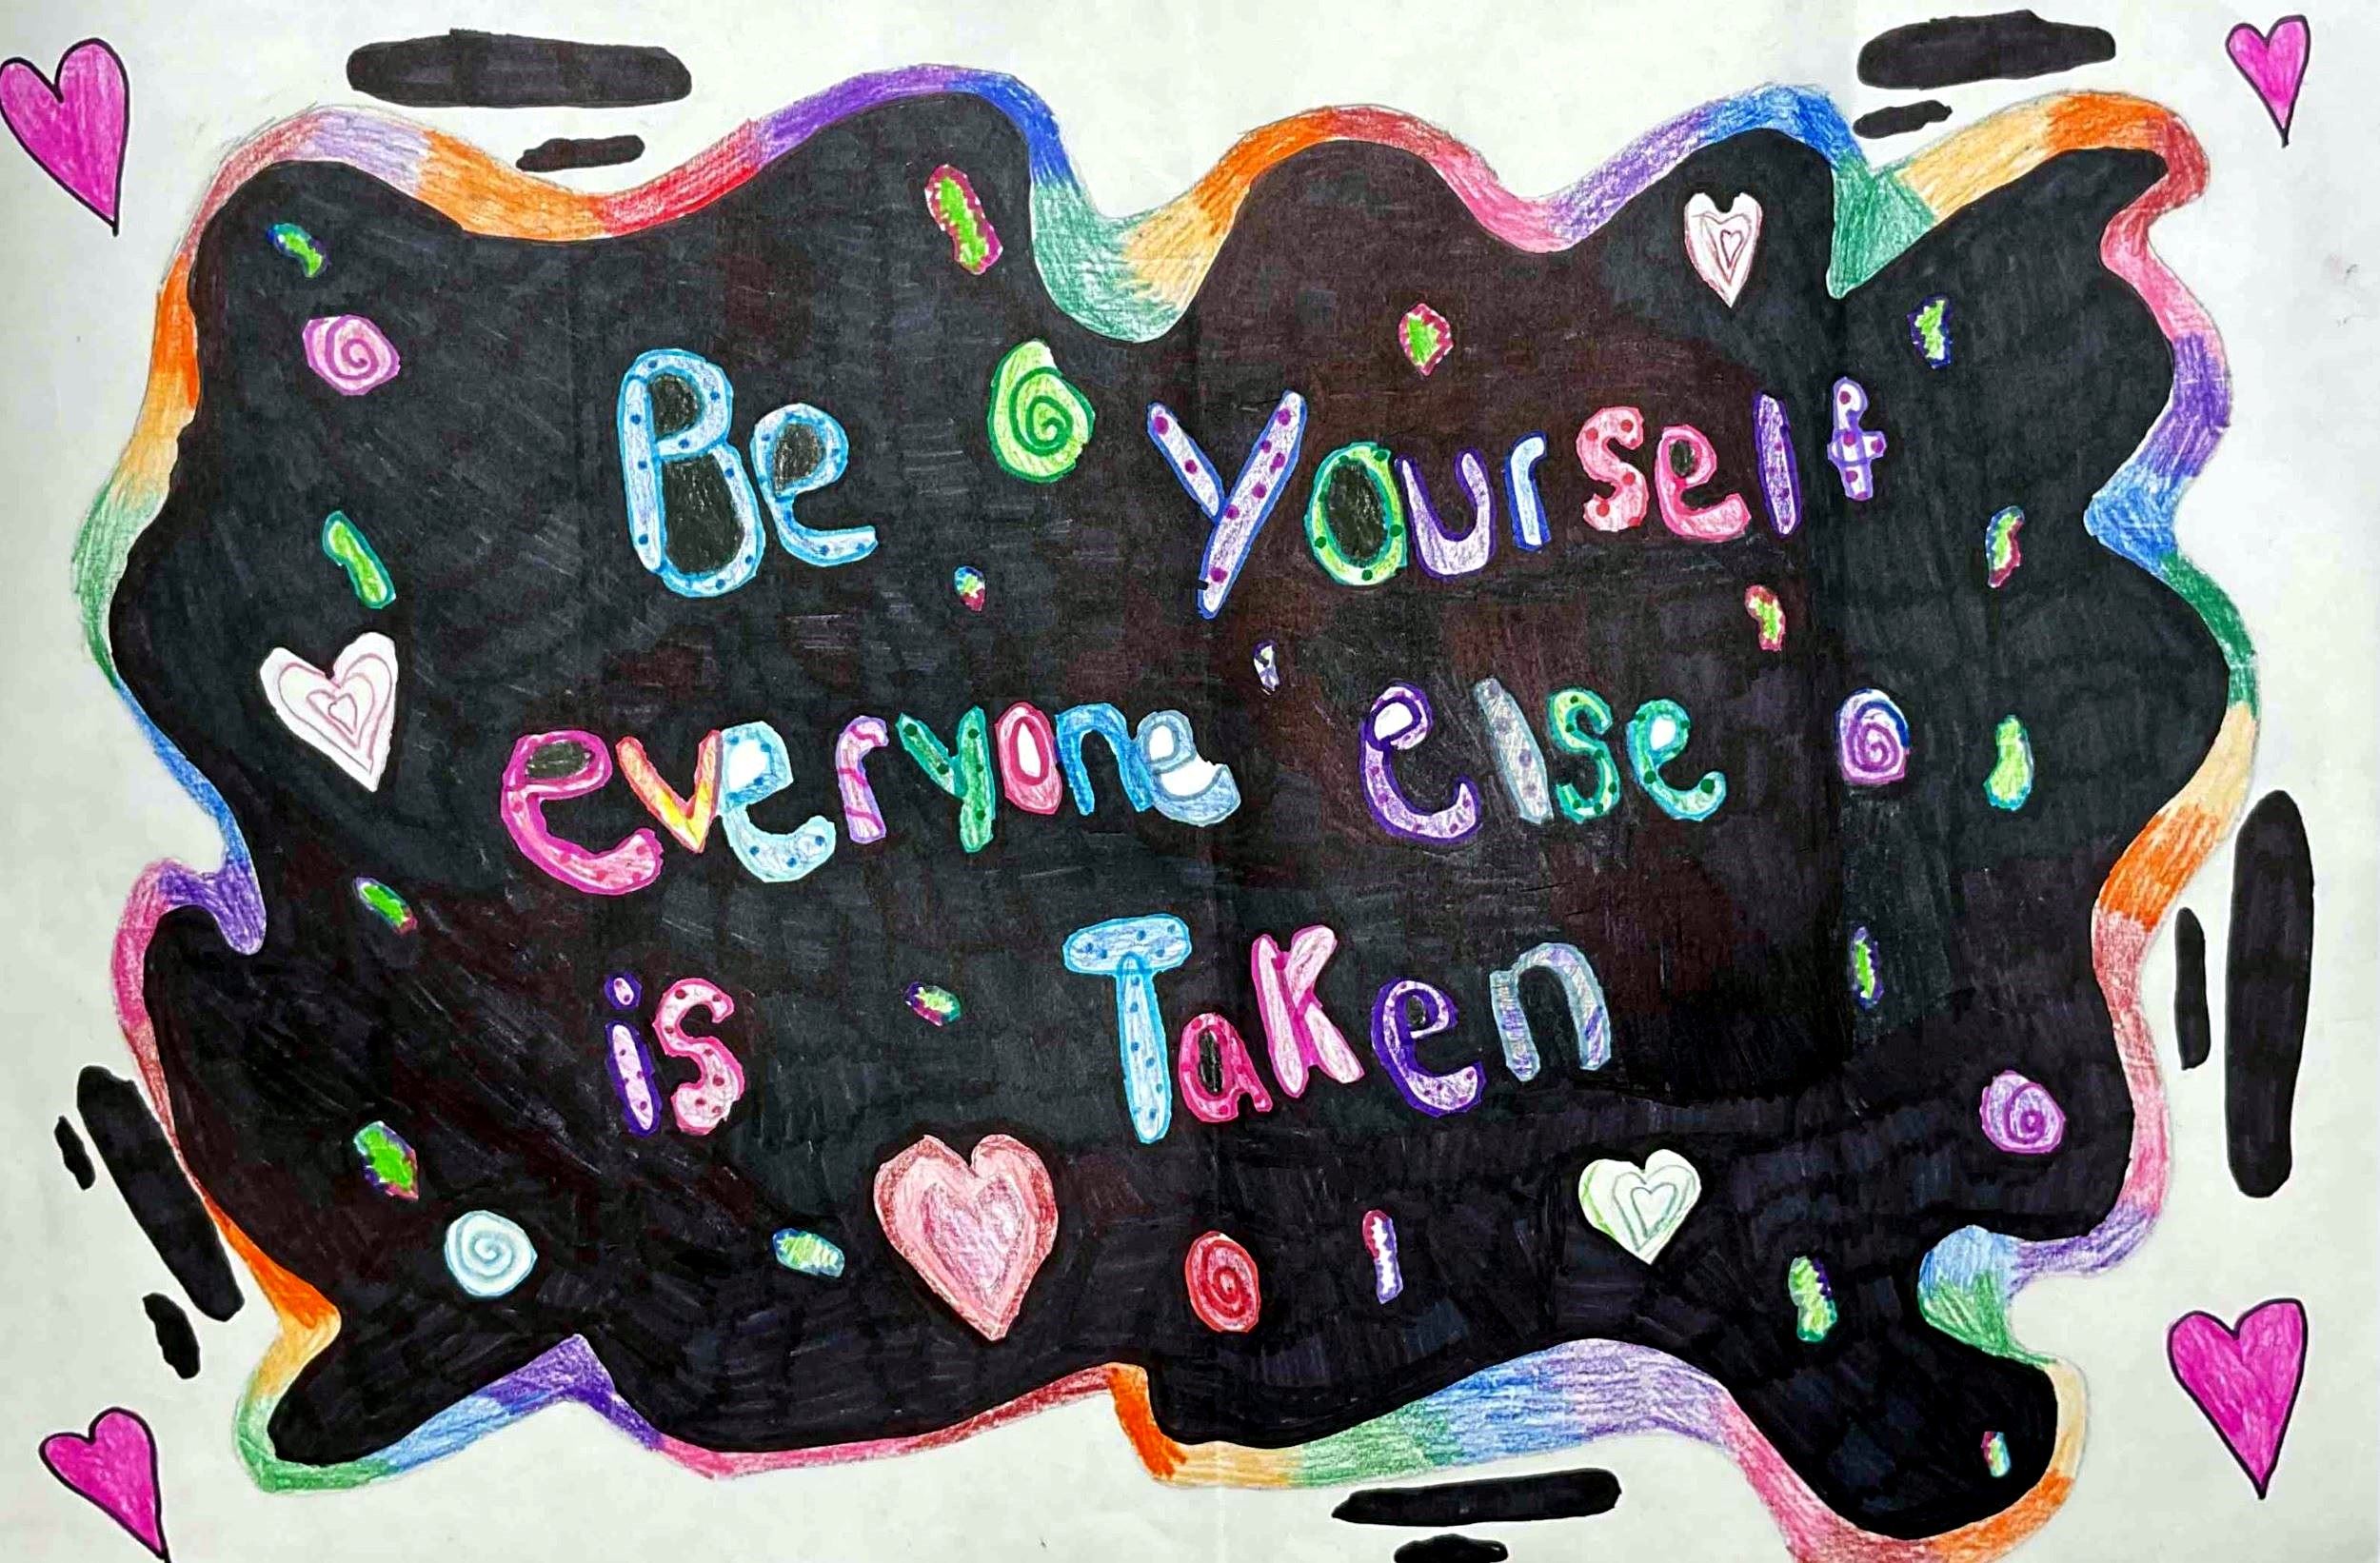 Be Yourself
everyone else
is Taken